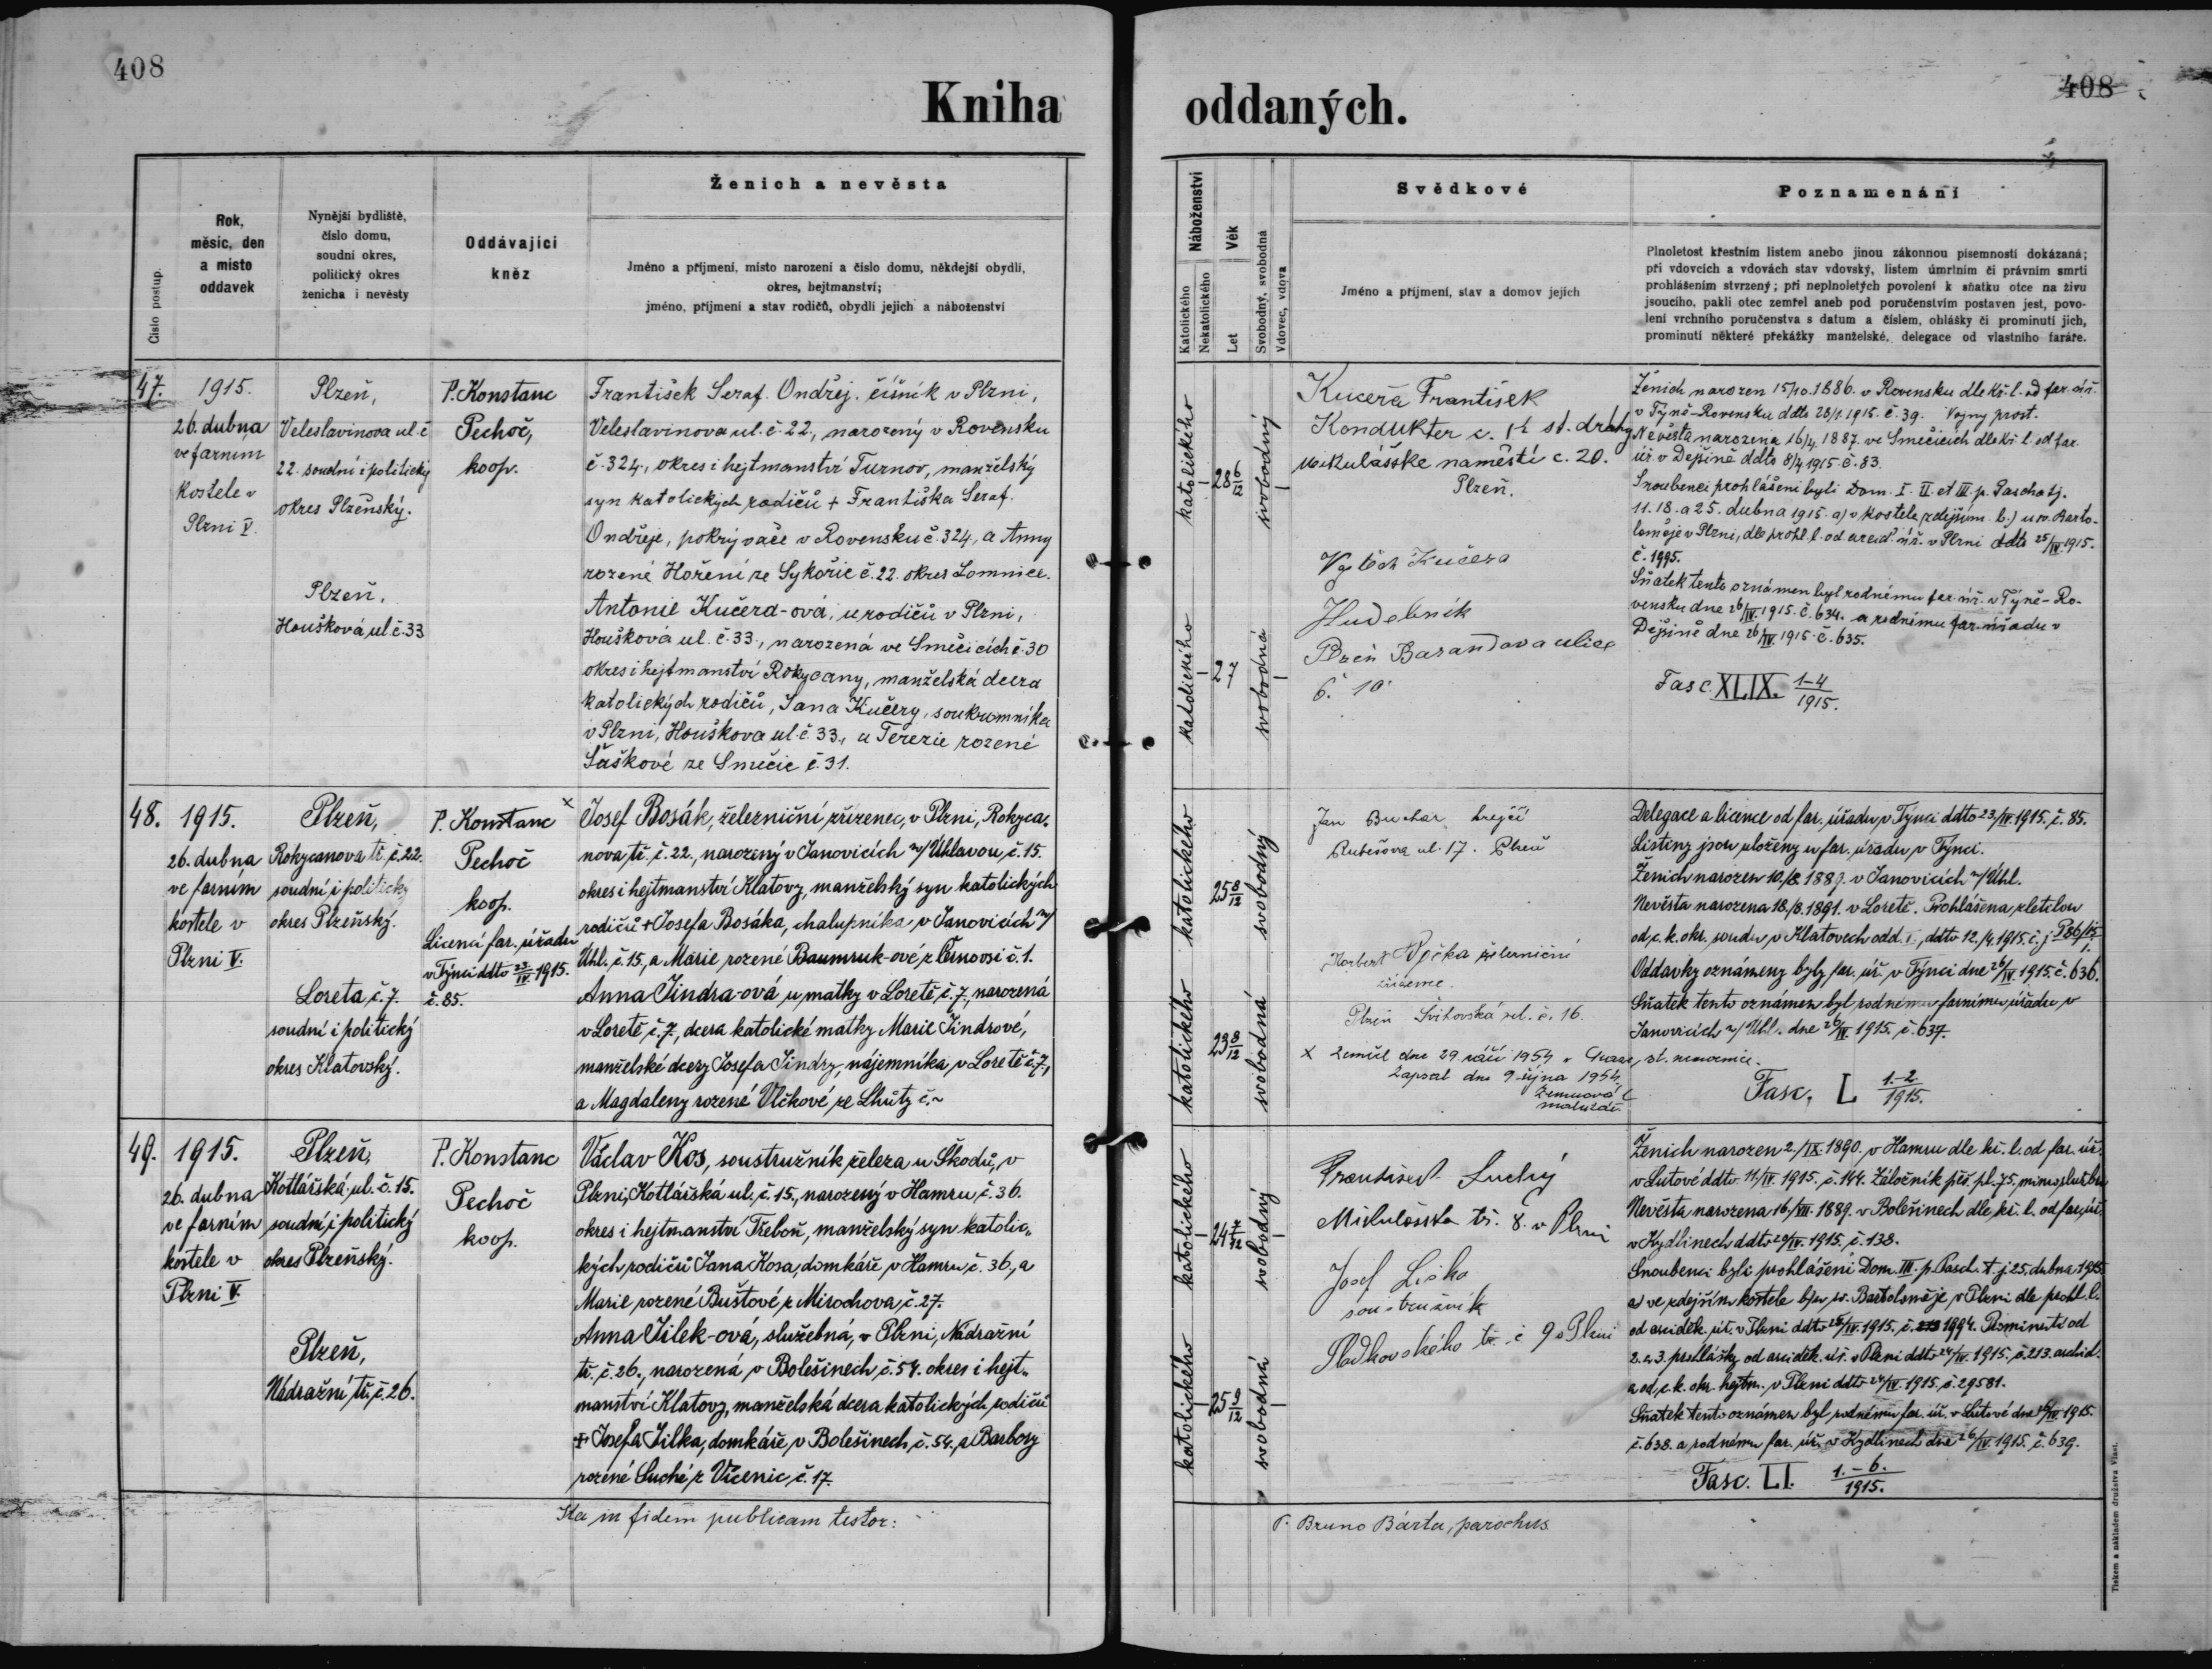 408
408
Kniha oddaných.
Číslo postup.
Rok,
měsíc, den
a místo
oddavek
Nynější bydliště,
číslo domu,
soudní okres,
politický okres
ženicha i nevěsty
Oddávající
kněz
Ženich a nevěsta
Jméno a příjmení, místo narození a číslo domu, někdejší obydlí,
okres, hejtmanství;
jméno, příjmení a stav rodičů, obydlí jejich a náboženství
Náboženství
Katolického
Nekatolického
Věk
Let
Svobodný, svobodná
Vdovec, vdova
Svědkové
Jméno a příjmení, stav a domov jejich
Poznamenání
Plnoletost křestním listem anebo jinou zákonnou písemností dokázaná;
při vdovcích a vdovách stav vdovský, listem úmrtním či právním smrti
prohlášením stvrzený; při neplnoletých povolení k sňatku otce na živu
jsoucího, pakli otec zemřel aneb pod poručenstvím postaven jest, povo-
lení vrchního poručenstva s datum a číslem, ohlášky či prominutí jich,
prominutí některé překážky manželské, delegace od vlastního faráře.
47.
1915.
26. dubna
ve farním
kostele v
Plzni V.
Plzeň,
Veleslavínova ul. č
22. soudní i politický
okres Plzeňský.
Plzeň,
Houšková ul. č. 33
P. Konstanc
Pechoč,
koop.
František Seraf. Ondřej, číšník v Plzni,
Veleslavínova ul. č. 22., narozený v Rovensku
č. 324., okres i hejtmanství Turnov, manželský
syn katolických rodičů + Františka Seraf.
Ondřeje, pokrývače v Rovensku č. 324, a Anny
rozené Hoření ze Sykořic č. 22. okres Lomnice.
Antonie Kučera-ová, u rodičů v Plzni,
Houšková ul. č. 33., narozená ve Směčicích č. 30
okres i hejtmanství Rokycany, manželská dcera
katolických rodičů, Jana Kučery, soukromníka
v Plzni, Houškova ul. č. 33., a Terezie rozené
Šáškové ze Směčic č. 31.
katolického
28 6/12
svobodný
katolického
27
svobodná
Kučera František
Kondukter c. k. st. dráhy
Mikulášske naměstí c. 20.
Plzeň.
Vojtěch Kučera
Hudebník
Plzeň Barandova ulice
č. 10
Ženich narozen 15/10. 1886. v Rovensku dle kř. l. od far. úř.
v Týně-Rovensku ddto 28/1. 1915. č. 39. Vojny prost.
Nevěsta narozena 16/4. 1887. ve Směčicích dle kř. l. od far.
úř. v Dejšině ddto 8/4 1915. č. 83.
Snoubenci prohlášeni byli Dom. I. II. et III. p. Pascha tj.
11. 18. a 25. dubna 1915. a) v kostele zdejším. b.) u sv. Barto-
loměje v Plzni, dle prohl. l. od arcid. úř. v Plzni ddto 25/IV. 1915.
č. 1995.
Sňatek tento oznámen byl rodnému far. úř. v Týně-Ro-
vensku dne 26/IV. 1915. č. 634. a rodnému far. úřadu v
Dejšině dne 26/IV. 1915. č. 635.
Fasc. XLIX. 1-4/1915.
48.
1915.
26. dubna
ve farním
kostele v
Plzni V.
Plzeň,
Rokycanova tř. č. 22.
soudní i politický
okres Plzeňský.
Loreta č. 7.
soudní i politický
okres Klatovský.
P. Konstanc
Pechoč
koop.
Licencí far. úřadu
v Týnci ddto 23/IV. 1915.
č. 85.
x
Josef Bosák, železniční zřízenec, v Plzni, Rokyca-
nova tř. č. 22., narozený v Janovicích n/Úhlavou, č. 15.
okres i hejtmanství Klatovy, manželský syn katolických
rodičů + Josefa Bosáka, chalupníka, v Janovicích n/
Úhl. č. 15, a Marie rozené Baumruk-ové z Černovsi č. 1.
Anna Jindra-ová u matky v Loretě, č. 7, narozená
v Loretě č. 7, dcera katolické matky Marie Jindrové,
manželské dcery Josefa Jindry, nájemníka, v Loretě č. 7,
a Magdaleny rozené Vlčkové ze Lhůty č. ~
katolického
25 8/12
svobodný
katolického
23 8/12
svobodná
Jan Buchar krejčí
Rubešova ul. 17. Plzeň
Norbert železniční
zřízenec.
Plzeň ul. č. 16.
x Zemřel dne 29 září 1954 v , st. nemocnice.
Zapsal dne 9. října 1954
Delegace a licence od far. úřadu v Týnci ddto 23./IV. 1915. č. 85.
Listiny jsou uloženy u far. úřadu v Týnci.
Ženich narozen 10./8. 1889. v Janovicích n/Úhl.
Nevěsta narozena 18./8. 1891. v Loretě. Prohlášena zletilou
od c. k. okr. soudu v Klatovech odd. I., ddto 12./4. 1915. č. j. P 86/15
Oddavky oznámeny byly far. úř. v Týnci dne 26/IV. 1915. č. 636.
Sňatek tento oznámen byl rodnému farnímu úřadu v
Janovicích n/Úhl. dne 26/IV. 1915. č. 637.
Fasc. L 1.-2./1915.
49.
1915.
26. dubna
ve farním
kostele v
Plzni V.
Plzeň,
Kotlářská ul. č. 15.
soudní i politický
okres Plzeňský.
Plzeň,
Nádražní tř. č. 26.
P. Konstanc
Pechoč
koop.
Václav Kos, soustružník železa u Škodů, v
Plzni, Kotlářská ul. č. 15., narozený v Hamru, č. 36.
okres i hejtmanství Třeboň, manželský syn katolic-
kých rodičů Jana Kosa, domkáře v Hamru, č. 36., a
Marie rozené Buštové z Mirochova, č. 27.
Anna Jilek-ová, služebná, v Plzni, Nádražní
tř. č. 26., narozená v Bolešinech č. 54. okres i hejt-
manství Klatovy, manželská dcera katolických rodičů
+ Josefa Jilka, domkáře, v Bolešinech, č. 54, a Barbory
rozené Suché z Vícenic č. 17.
katolického
24 7/12
svobodný
katolického
25 9/12
svobodná
František Suchý
Mikulášská tř. 8. v Plzni
Josef Liška
soustružník
Sladkovského tř. č 9 v Plzni
Ženich narozen 2./IX. 1890. v Hamru dle kř. l. od far. úř.
v Lutové ddto 11/IV. 1915. č. 144. Záložník pěš. pl. 75, mimo službu
Nevěsta narozena 16./VII. 1889. v Bolešinech dle kř. l. od far. úř.
v Kydlinech ddto 20/IV. 1915. č. 138.
Snoubenci byli prohlášeni Dom. III. p. Pasch. t. j. 25. dubna 1915.
a) ve zdejším kostele b) u sv. Bartoloměje v Plzni dle prohl. l.
od arciděk. úř. v Plzni ddto 25/IV. 1915. č. 1994. Prominutí od
2. a 3. prohlášky od arciděk. úř. v Plzni ddto 24/IV. 1915. č. 213. archid.
a od c. k. okr. hejtm. v Plzni ddto 24/IV. 1915. č. 29581.
Sňatek tento oznámen byl rodnému far. úř. v Lutové dne 26/IV. 1915.
č. 638. a rodnému far. úř. v Kydlinech dne 26/IV. 1915. č. 639.
Fasc. LI. 1.-6./1915.
Ita in fidem publicam testor:
P. Bruno Bárta, parochus
Tiskem a nákladem družstva Vlast.